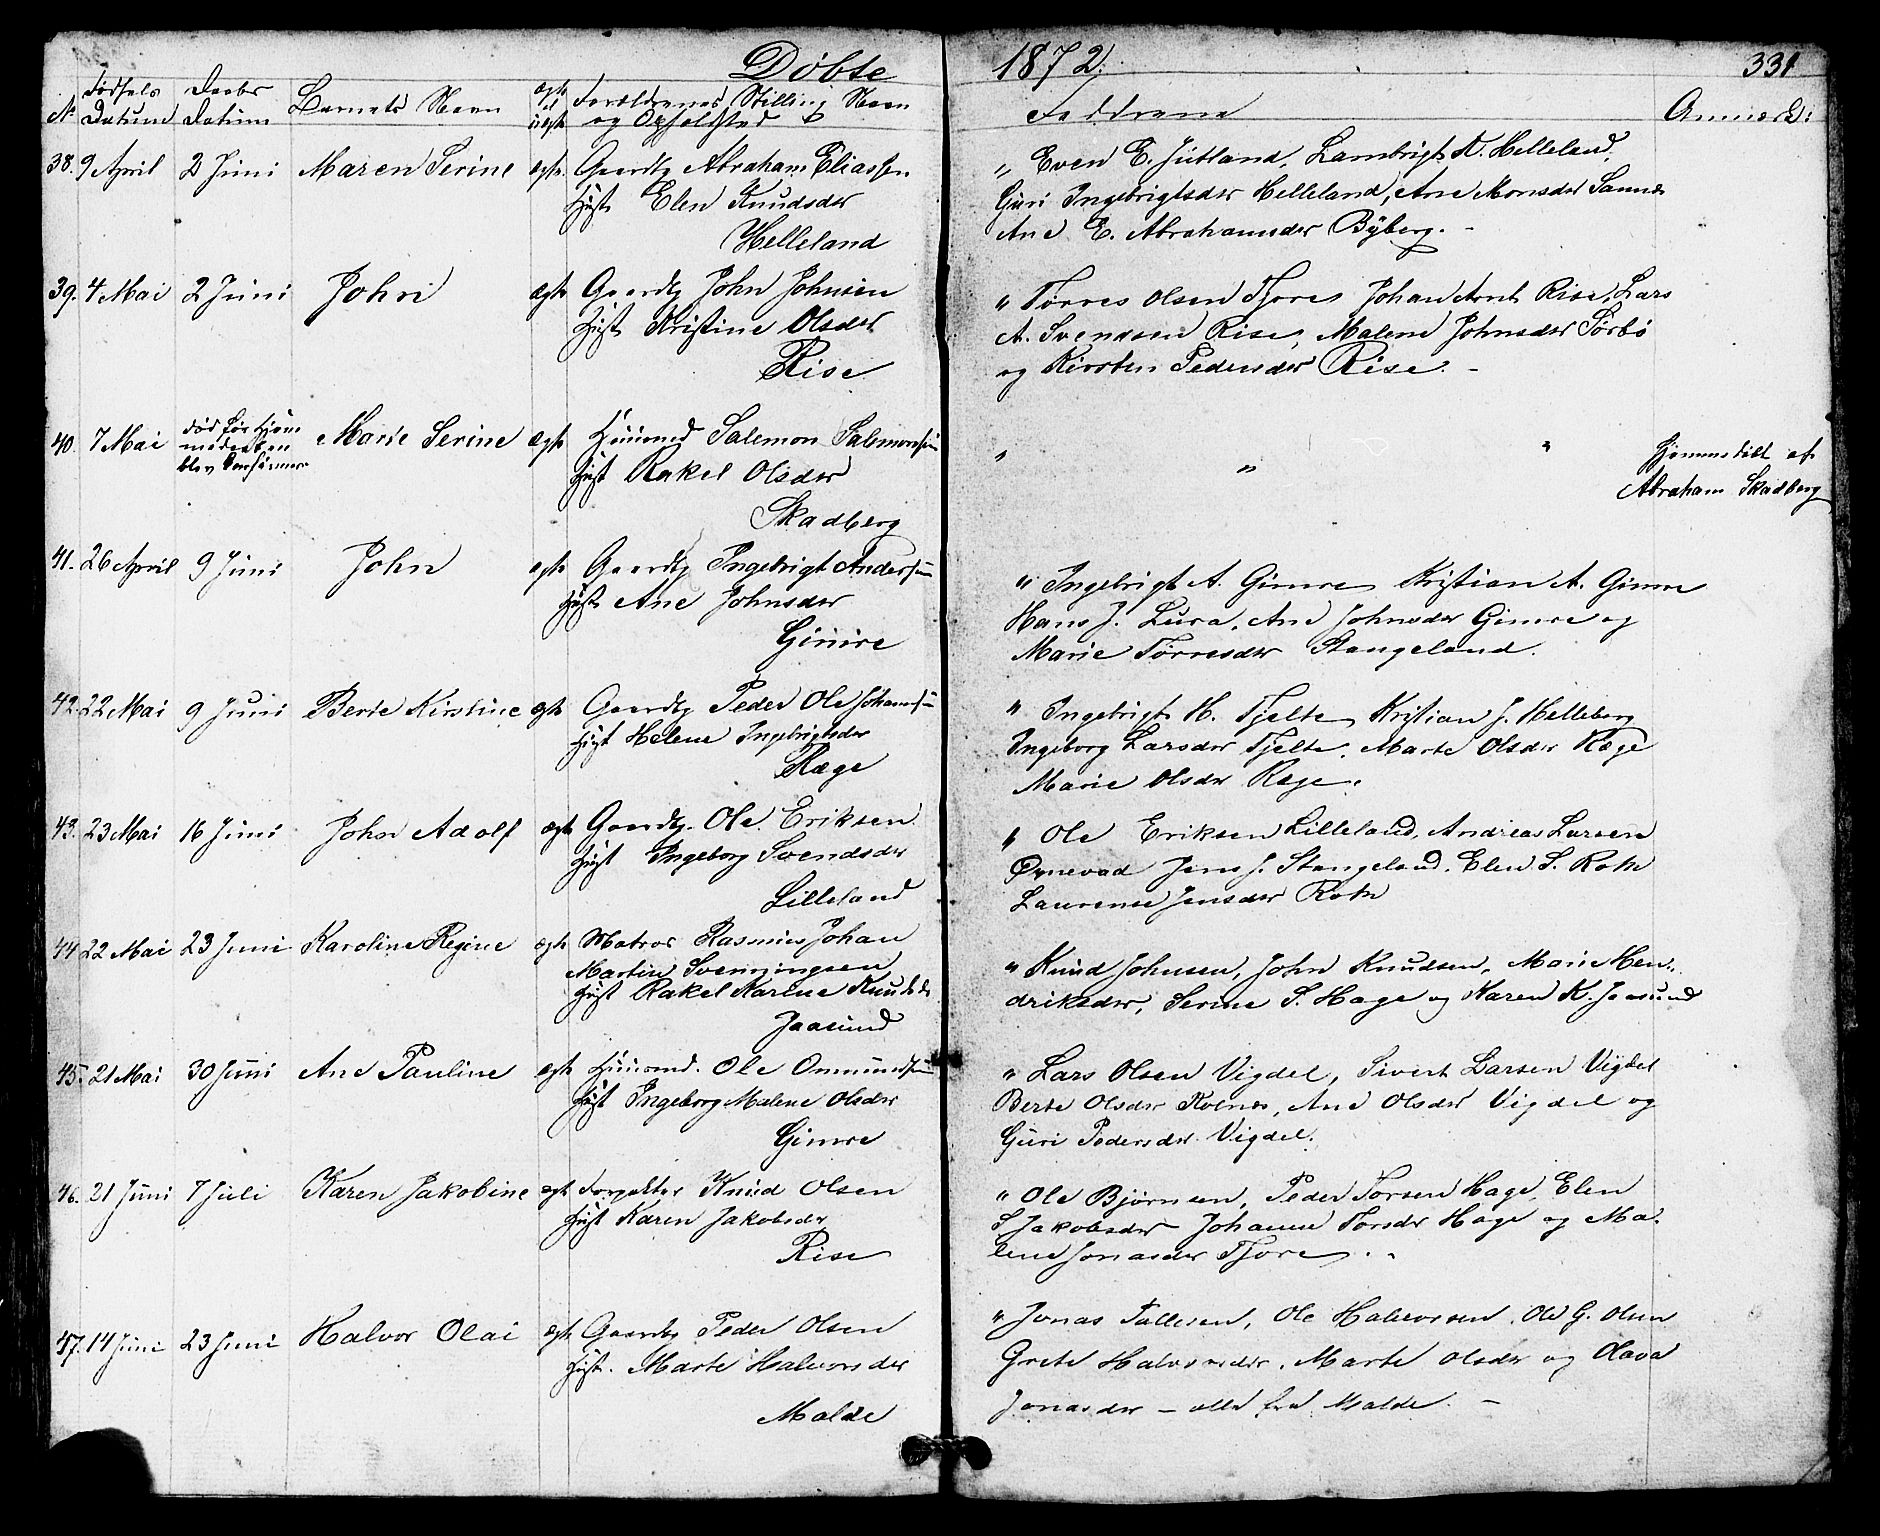 Döbte 1872. 331
No Födsels Datum Daabs Datum Barnets Navn ægte el uægte Forældrenes Stilling Navn og Opholdsted Faddrene Anmærk:
38. 9 April 2 Juni Maren Serine ægte Gaardbg Abraham Eliassen
Hust Elen Knudsdtr
Helleland
" Even E. Jütland, Lambrigt K. Helleland,
Guri Ingebrigtsdtr Helleland, Ane Monsdtr Sannes
Ane E. Abrahamsdtr Byberg. -
39. 4 Mai 2 Juni John ægte Gaardbg John Johnsen
Hust Kristine Olsdtr
Rise
" Törres Olsen Tjore, Johan Arnt Rise, Lars
A. Svendsen Rise, Malene Johnsdtr Sörbö
og Kirsten Pedersdtr Rise. -
40. 7 Mai död før Hjemmedaaben blev Marie Serine ægte Huusmd Salemon Salemonsen
Hust Rakel Olsdtr
Skadberg
" " " Hjemmedöbt af
Abraham Skadberg
41. 26 April 9 Juni John ægte Gaardbg Ingebrigt Andersen
Hust Ane Johnsdtr
Gimre
" Ingebrigt A. Gimre, Kristian A. Gimre
Hans J. Lura, Ane Johnsdtr Gimre og
Marie Törresdtr Stangeland.
42. 22 Mai 9 Juni Berte Kirstine ægte Gaardbg Peder Ole Johannsen
Hust Helene Ingebrigtsdtr
Ræge
" Ingebrigt H. Tjelte, Kristian J. Helleberg
Ingeborg Larsdtr Tjelte, Marte Olsdtr Ræge
Marie Olsdtr Ræge.
43. 23 Mai 16 Juni John Adolf ægte Gaardbg. Ole Eriksen
Hust Ingeborg Svendsdtr
Lilleland
" Ole Eriksen Lilleland, Andreas Larsen
Örnevad Jens J. Stangeland, Elen S. Rott
Laurense Jensdtr Rott
44 22 Mai 23 Juni Karoline Regine ægte Matros Rasmus Johan
Martin Svenningsen
Hust Rakel Karine Knudsdr
Jaasund
" Knud Johnsen, John Knudsen, Marie Hen-
driksdtr, Serine S. Hage og Karen K. Jaasund
45. 21 Mai 30 Juni Ane Pauline ægte Huusmd. Ole Ommundsen
Hust Ingeborg Malene Olsdtr
Gimre
" Lars Olsen Vigdel, Sivert Larsen Vigdel
Berte Olsdtr Kolnes, Ane Olsdtr Vigdel og
Guri Pedersdtr Vigdel.
46. 21 Juni 7 Juli Karen Jakobine ægte Forpakter Knud Olsen
Hust Karen Jakobsdtr
Rise
" Ole Bjørnsen, Peder Torsen Hage, Elen
S Jakobsdtr Johanne Torsdtr Hage og Ma-
lene Jonasdtr Tjore. -
47. 14 Juni 23 Juni Halvor Olai ægte Gaardbg Peder Olsen
Hust. Marte Halvorsdtr
Malde
" Jonas Tollesen, Ole Halvorsen, Ole G. Olsen
Grete Halvorsdtr, Marte Olsdtr og Olava
Jonasdtr - alle fra Malde. -